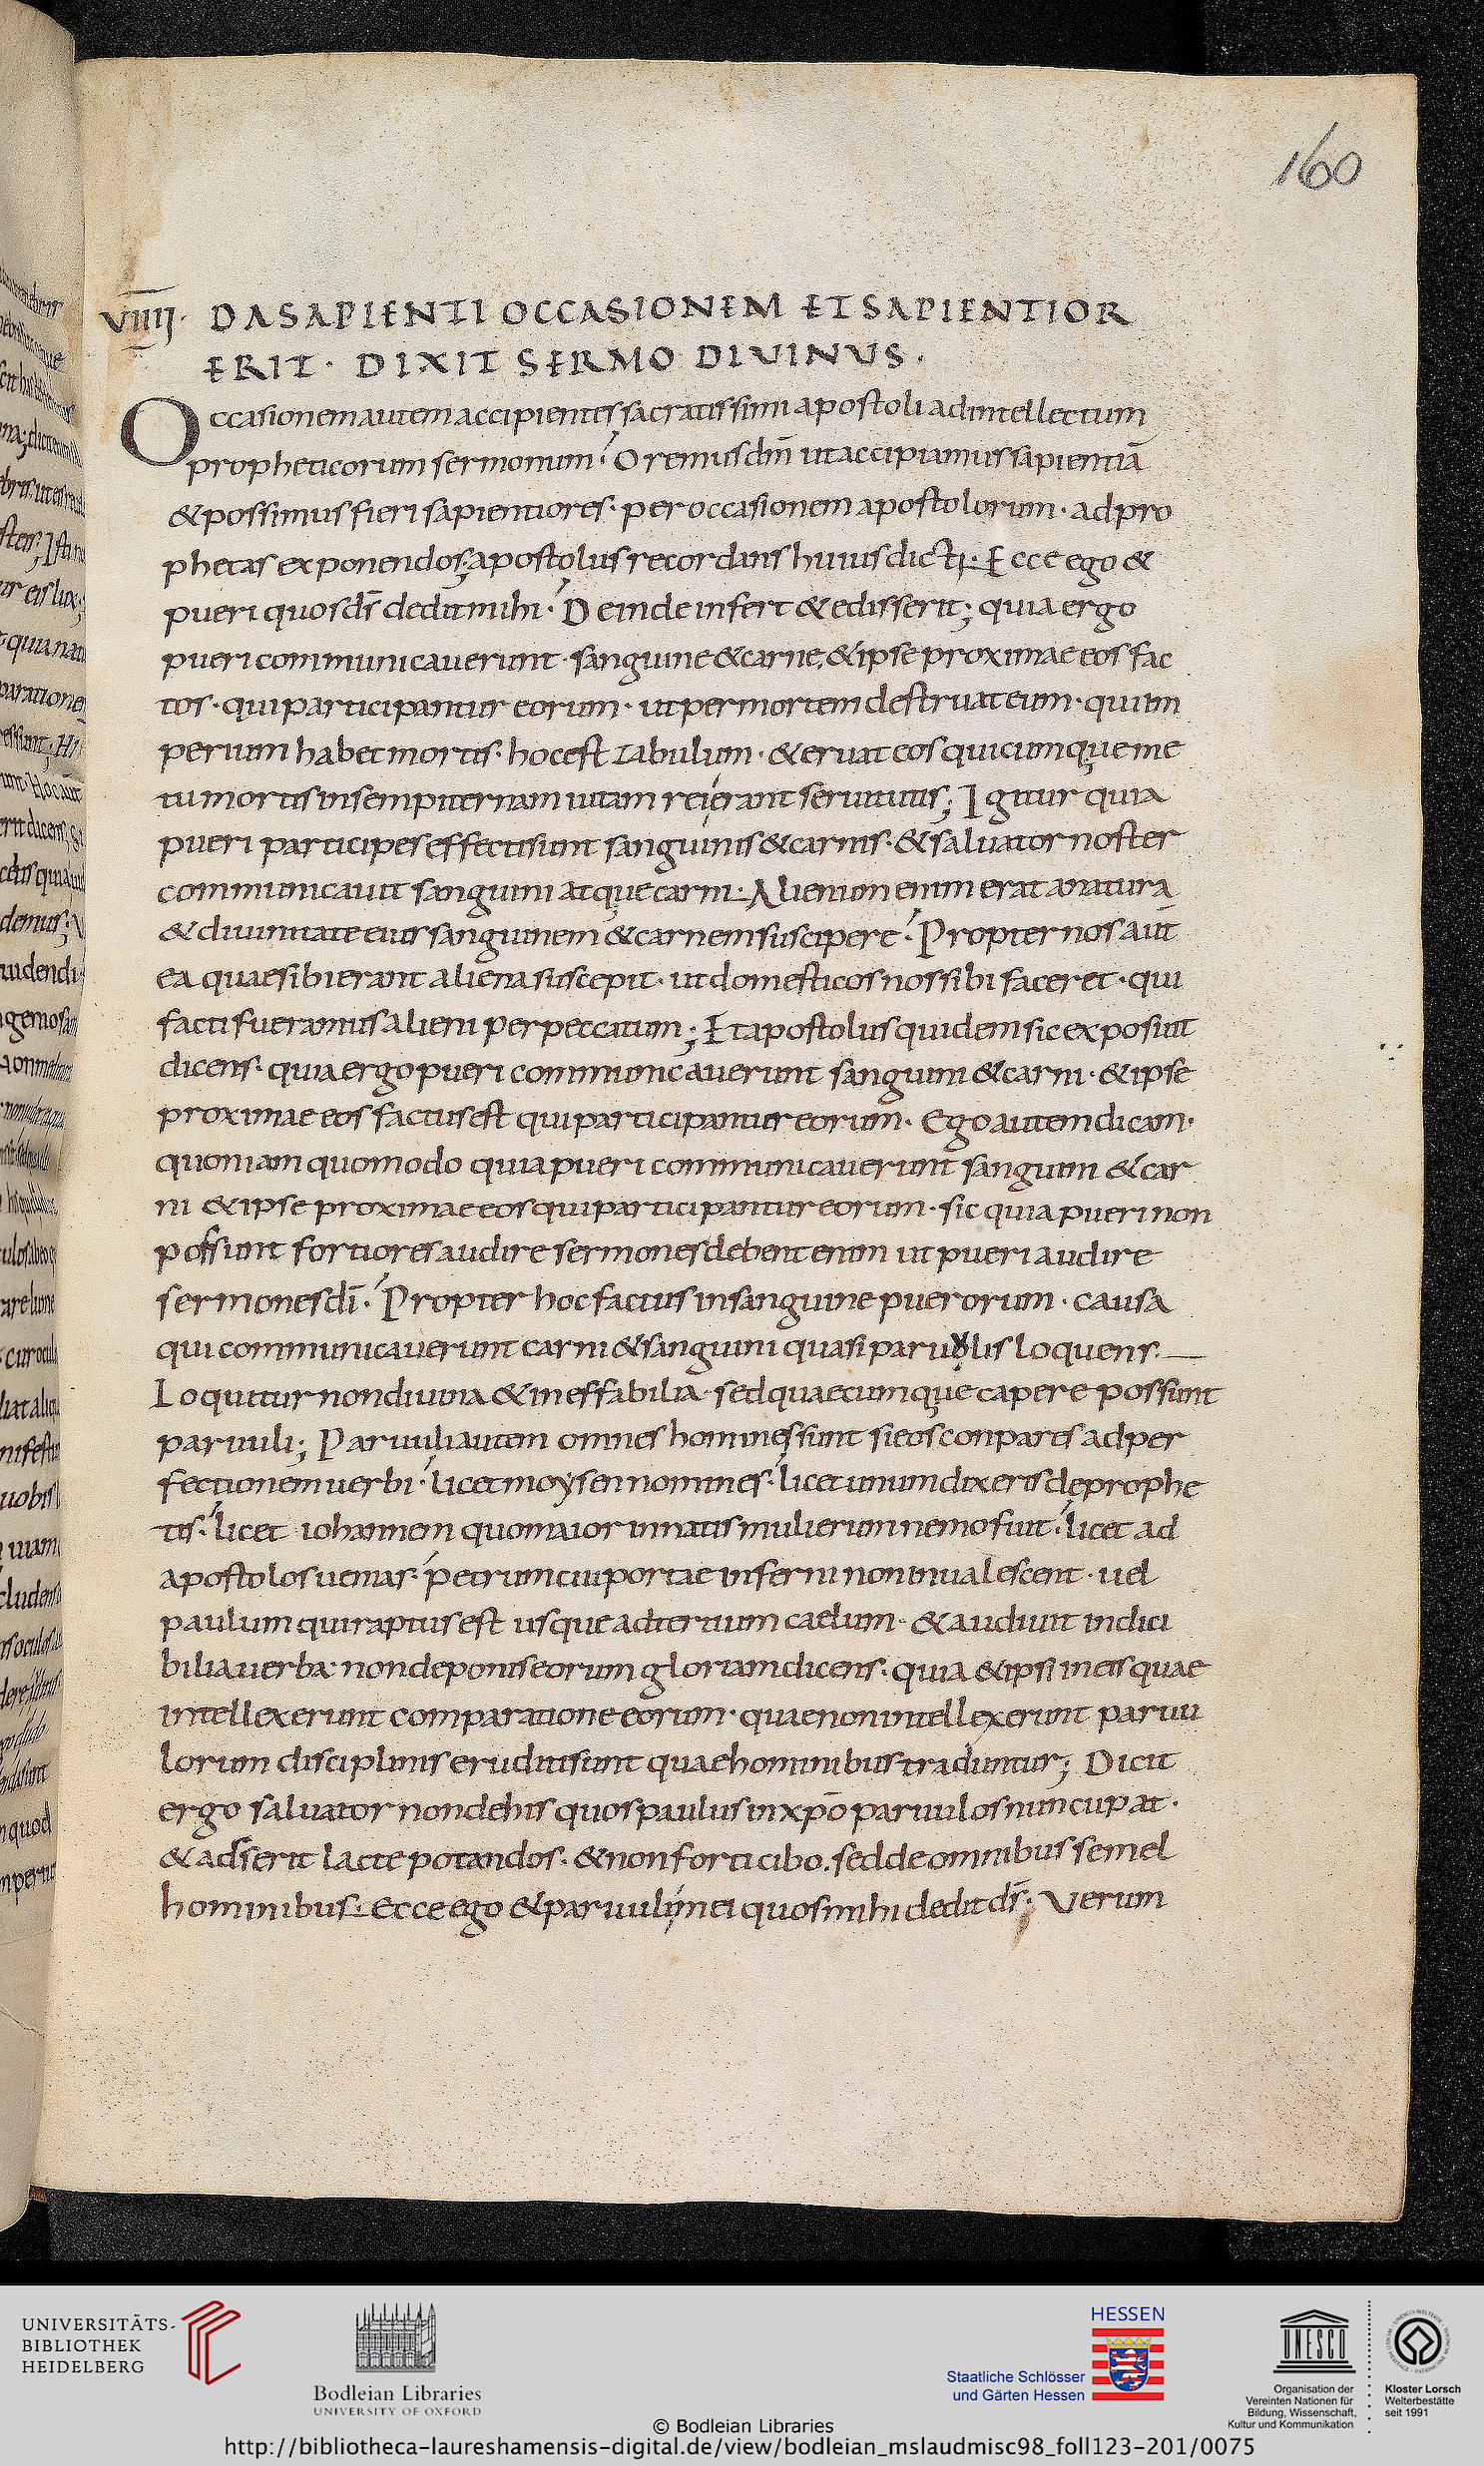 160
VIIII· DA SAPIENTI OCCASIONEM ET SAPIENTIOR
ERIT · DIXIT SERMO DIUINUS .
Occasionem autem accipientes sacratissimi apostoli ad intellectum
propheticorum sermonum · Oremus dm̄ ut accipiamus sapientiā
& possimus fieri sapientiores · per occasionem apostolorum · ad pro
phetas exponendos; apostolus recordans huius dicti · Ecce ego &
pueri quos ds̄ dedit mihi · Deinde infert & edisserit; quia ergo
pueri communicauerunt · sanguine & carne, & ipse proximae eos fac
tos · qui participantur eorum · ut per mortem destruat eum · qui im
perium habet mortis · hoc est zabulum · & eruat eos quicumque me
tu mortis in sempiternam uitam reierant seruitutis; Igitur quia
pueri participes effecti sunt sanguinis & carnis · & saluator noster
communicauit sanguini atque carni · Alienum enim erat a natura
& diuinitate eius sanguinem & carnem suscipere · Propter nos aut̄
ea quae sibi erant aliena suscepit · ut domesticos nos sibi faceret · qui
facti fueramus alieni per peccatum; Et apostolus quidem sic exposuit
dicens · quia ergo pueri communicauerunt sanguini & carni · & ipse
proximae eos factus est qui participantur eorum · Ego autem dicam ·
quoniam quomodo quia pueri communicauerunt sanguini & car
ni & ipse proximae eos qui participantur eorum · sic quia pueri non
possunt fortiores audire sermones debent enim ut pueri audire
sermones dī · Propter hoc factus in sanguine puerorum · causa
qui communicauerunt carni & sanguini quasi paruulis loquens ·
Loquitur non diuina & ineffabilia · sed quaecumque capere possunt
paruuli; Paruuli autem omnes homines sunt si eos conpares ad per
fectionem uerbi · licet moysen nomines · licet unum dixeris de prophe
tis · licet iohannem quo maior in natis mulierum nemo fuit · licet ad
apostolos uenias · petrum cui portae inferni non inualescent · uel
paulum qui raptus est usque ad tertium caelum · & audiuit indici
bilia uerba · non deponis eorum gloriam dicens · quia & ipsi in eis quae
intellexerunt comparatione eorum · quae non intellexerunt paruu
lorum disciplinis eruditi sunt quae hominibus traduntur; Dicit
ergo saluator non de his quos paulus in xp̄o paruulos nuncupat ·
& adserit lacte potandos · & non forti cibo · sed de omnibus semel
hominibus · Ecce ego & paruuli mei quos mihi dedit ds̄ · Verum
UNIVERSITÄTS-
BIBLIOTHEK
HEIDELBERG
Bodleian Libraries
UNIVERSITY OF OXFORD
© Bodleian Libraries
HESSEN
Staatliche Schlösser
und Gärten Hessen
UNESCO
Organisation der
Vereinten Nationen für
Bildung, Wissenschaft,
Kultur und Kommunikation
Kloster Lorsch
Welterbestätte
seit 1991
http://bibliotheca-laureshamensis-digital.de/view/bodleian_mslaudmisc98_foll123-201/0075